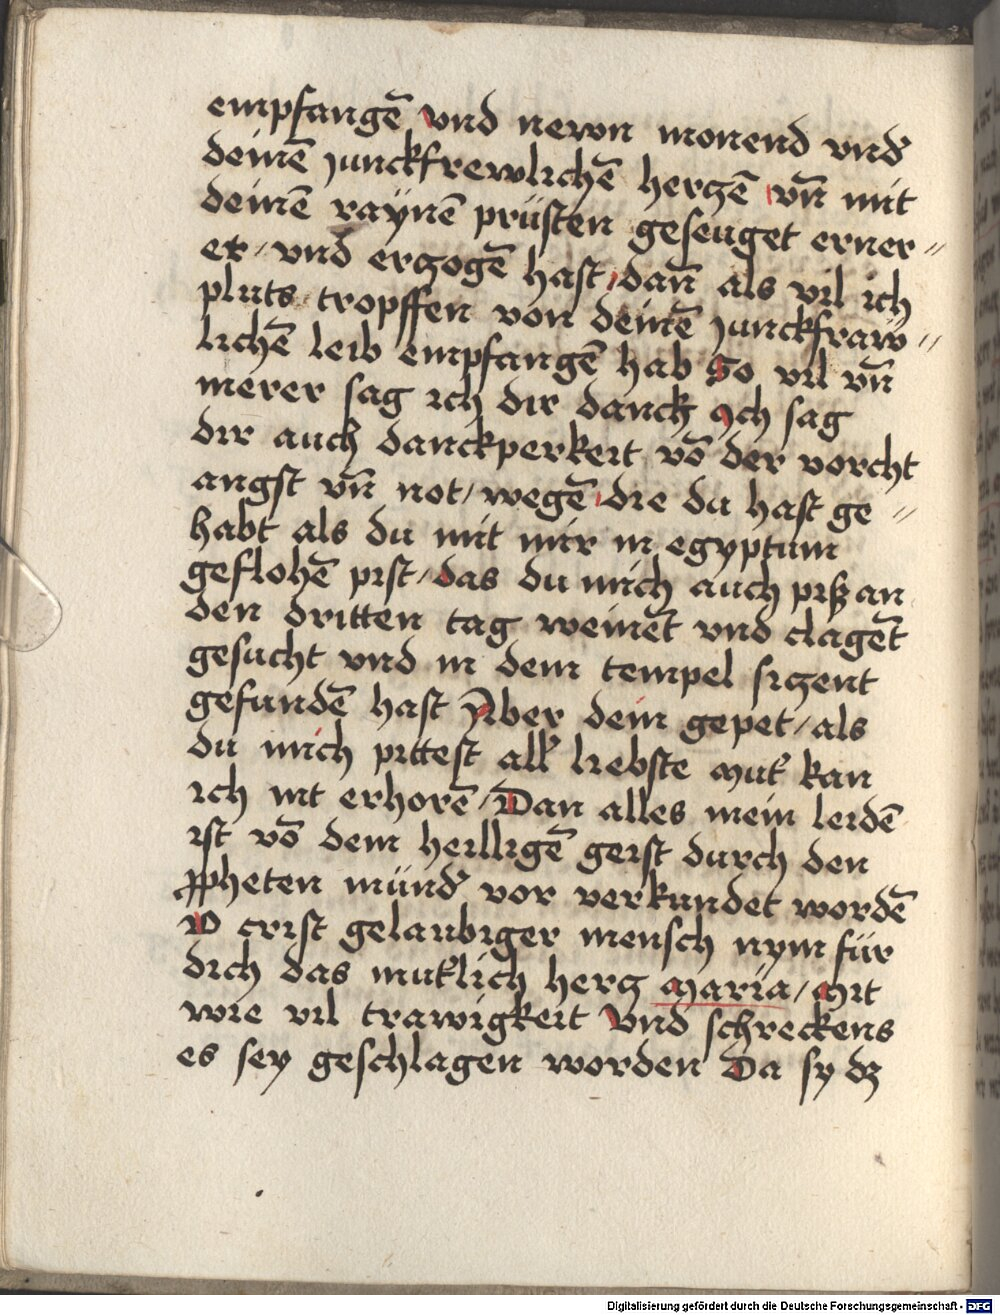 empfangē vnd newn monend vnd᷑
deinē junckfrewlichē herczē vn̄ mit
deinē raynē prüsten geseuget erner〃
et / vnd erczogē hast / dan̄ als vil ich
pluts tropffen von deinē junckfraw〃
lichē leib empfangē hab So vil vn̄
merer sag ich dir danck Ich sag
dir auch danckperkeit vō der vorcht
angst vn̄ not / wegē die du hast ge〃
habt als du mit mir in egyptum
geflohē pist / das du mich auch piß an
den dritten tag weinēt vnd clagēt
gesucht vnd in dem tempel siczent
gefundē hast Aber dein gepet / als
du mich pittest all᷑ liebste mut᷑ kan
ich nit erhorē / Dan alles mein leidē
ist vō dem heilligē geist durch den
ꝓpheten münd᷑ vor verkundet wordē
O crist gelaubiger mensch nym für
dich das mut᷑lich hercz maria / Mit
wie vil trawigkeit vnd schreckens
es sey geschlagen worden Da sy dz
Digitalisierung gefördert durch die Deutsche Forschungsgemeinschaft - DFG